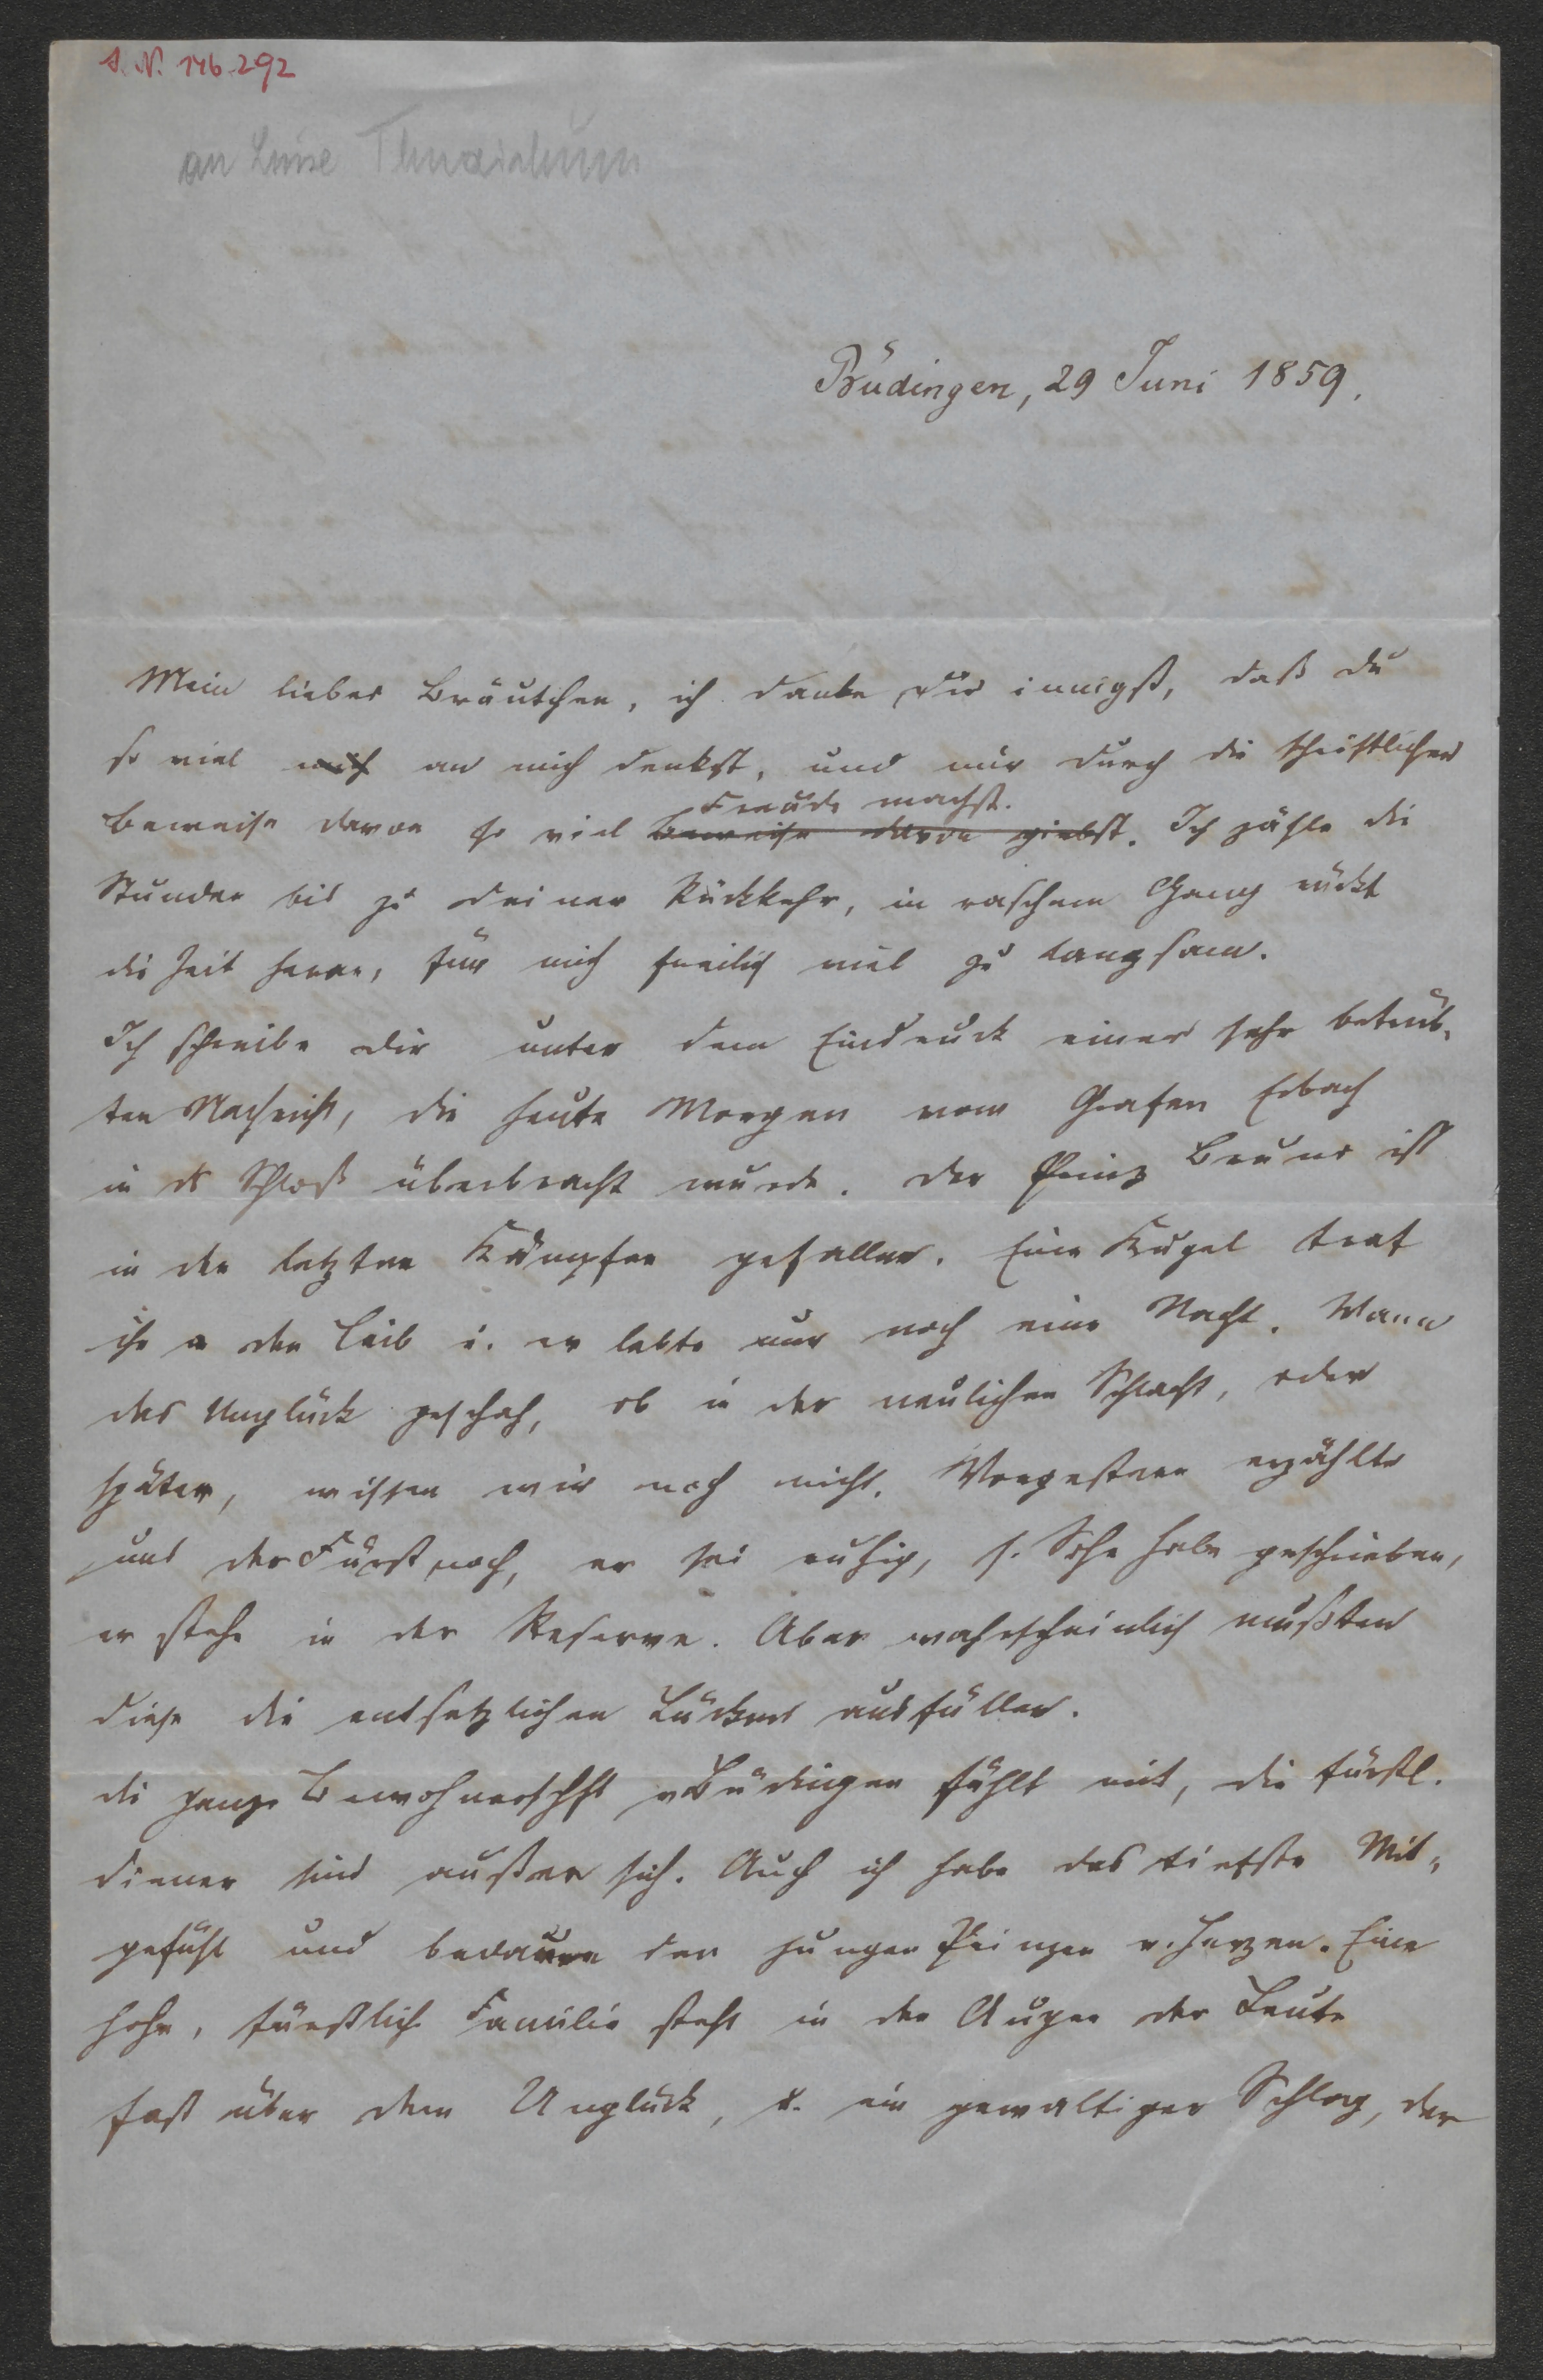 A. N. 146.292
an Luise Thudichum
Büdingen, 29 Juni 1859.
Mein liebes Bräutchen, ich danke Dir innigst, daß Du
so viel mich an mich denkst, und mir durch die schriftlichen
Freude machst.
Beweise davon so viel Beweise davon giebst. Ich zähle die
Stunden bis zu Deiner Rückkehr, in raschem Gang rückt
die Zeit heran, für mich freilich viel zu langsam.
Ich schreibe Dir unter dem Eindruck einer sehr betrüb-
ten Nachricht, die heute Morgen vom Grafen Erbach
in ds Schloß überbracht wurde. Der Prinz Bruno ist
in den letzten Kämpfen gefallen. Eine Kugel traf
ihn in den Leib u. er lebte nur noch eine Nacht. Wann
das Unglück geschah, ob in der neulichen Schlacht, oder
später, wissen wir noch nicht. Vorgestern erzählte
uns der Fürst noch, er sei ruhig, s. Sohn habe geschrieben,
er stehe in der Reserve. Aber wahrscheinlich mußten
diese die entsetzlichen Lücken ausfüllen.
Die ganze Bewohnerschft v Büdingen fühlt mit, die fürstl.
Diener sind außer sich. Auch ich habe das tiefste Mit-
gefühl und bedaure den jungen Prinzen v. Herzen. Eine
hohe, fürstliche Familie steht in den Augen der Leute
fast über dem Unglück, u. ein gewaltiger Schlag, der